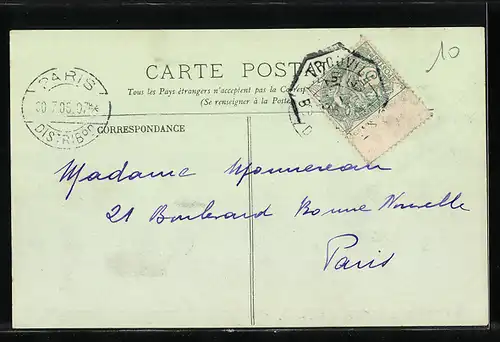 10
CARTE POST
Tous les Pays étrangers n'acceptent pas la Corresp
(Se renseigner à la Poste
PARIS
DISTRIBON
CORRESPONDANCE
Madame Monnereau
21 Boulevard Bonne Nouvelle
Paris